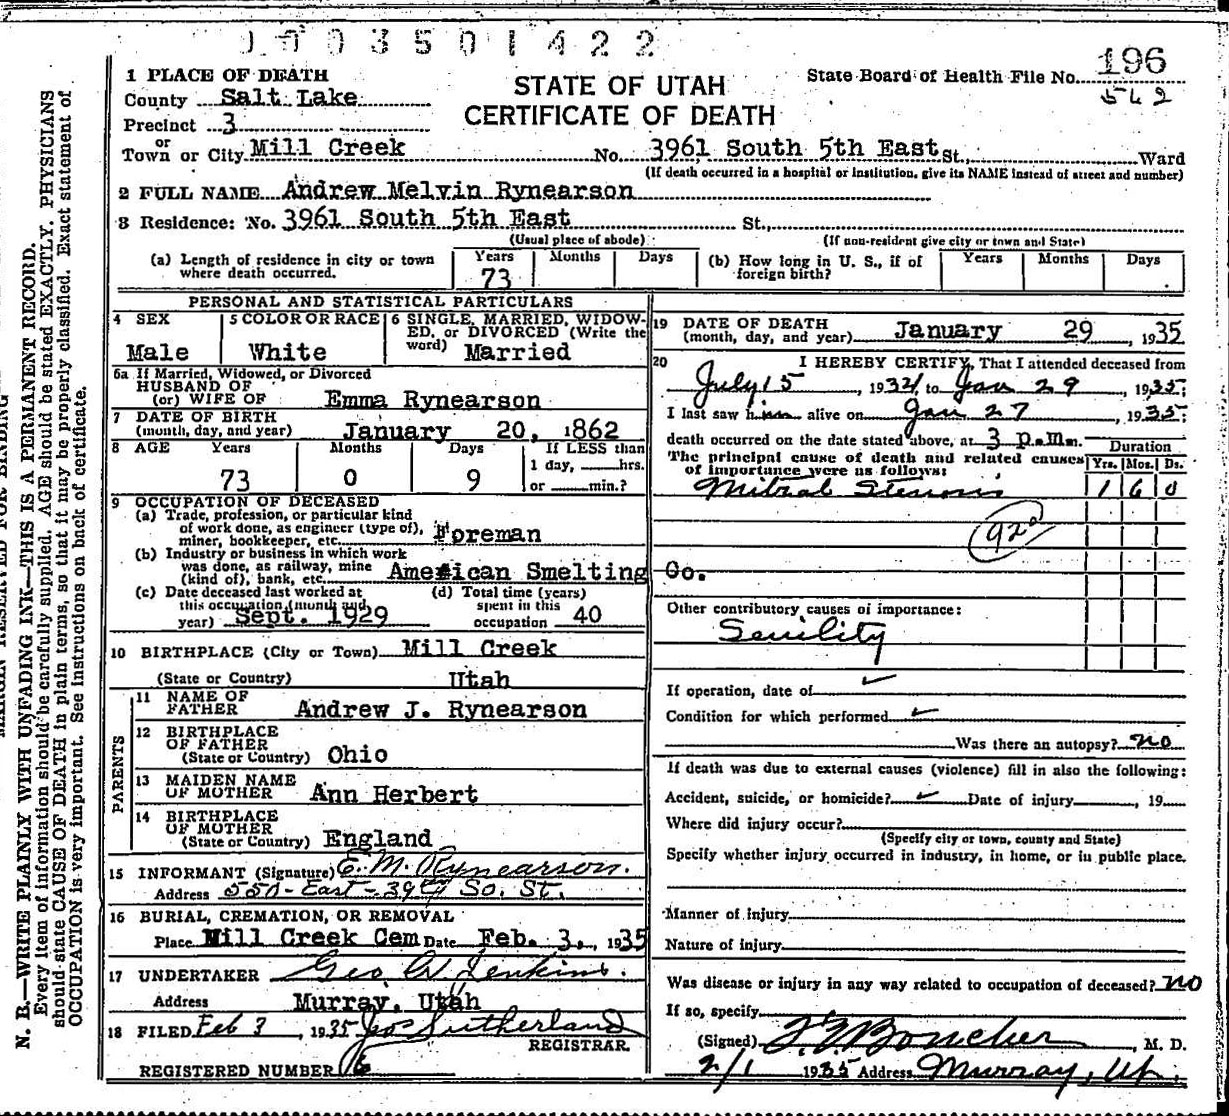 0003501422
1 PLACE OF DEATH
STATE OF UTAH
CERTIFICATE OF DEATH
State Board of Health File No. 196
542
County Salt Lake
Precinct 3
or
Town or City Mill Creek No. 3961 South 5th East St., Ward
(If death occurred in a hospital or institution, give its NAME instead of street and number)
2 FULL NAME Andrew Melvin Rynearson
3 Residence: No. 3961 South 5th East St.,
(Usual place of abode) (If non-resident give city or town and State)
(a) Length of residence in city or town where death occurred. Years 73 Months Days
(b) How long in U. S., if of foreign birth? Years Months Days
PERSONAL AND STATISTICAL PARTICULARS
4 SEX Male
5 COLOR OR RACE White
6 SINGLE, MARRIED, WIDOWED, or DIVORCED (Write the word) Married
6a If Married, Widowed, or Divorced
HUSBAND OF
(or) WIFE OF Emma Rynearson
7 DATE OF BIRTH
(month, day, and year) January 20, 1862
8 AGE Years Months Days If LESS than
73 0 9 1 day, hrs.
or min.?
9 OCCUPATION OF DECEASED
(a) Trade, profession, or particular kind
of work done, as engineer (type of),
miner, bookkeeper, etc. Foreman
(b) Industry or business in which work
was done, as railway, mine
(kind of), bank, etc. American Smelting Co.
(c) Date deceased last worked at
this occupation (month and
year) Sept. 1929
(d) Total time (years)
spent in this
occupation 40
10 BIRTHPLACE (City or Town) Mill Creek
(State or Country) Utah
PARENTS
11 NAME OF
FATHER Andrew J. Rynearson
12 BIRTHPLACE
OF FATHER
(State or Country) Ohio
13 MAIDEN NAME
OF MOTHER Ann Herbert
14 BIRTHPLACE
OF MOTHER
(State or Country) England
15 INFORMANT (Signature) E. M. Rynearson.
Address 550-East-39th So. St.
16 BURIAL, CREMATION, OR REMOVAL
Place Mill Creek Cem Date Feb. 3, 1935
17 UNDERTAKER Geo W Jenkins.
Address Murray, Utah
18 FILED Feb 3, 1935 Jos Sutherland
REGISTRAR.
REGISTERED NUMBER 6
19 DATE OF DEATH
(month, day, and year) January 29, 1935
20 I HEREBY CERTIFY, That I attended deceased from
July 15, 1934 to Jan 29, 1935.
I last saw him alive on Jan 27, 1935.
death occurred on the date stated above, at 3 p.m. Duration
The principal cause of death and related causes Yrs. Mos. Ds.
of importance were as follows:
Mitral Stenosis 1 6 0
92a
Other contributory causes of importance:
Senility
If operation, date of ✓
Condition for which performed ✓
Was there an autopsy? no
If death was due to external causes (violence) fill in also the following:
Accident, suicide, or homicide? ✓ Date of injury , 19
Where did injury occur?
(Specify city or town, county and State)
Specify whether injury occurred in industry, in home, or in public place.
Manner of injury
Nature of injury
Was disease or injury in any way related to occupation of deceased? no
If so, specify
(Signed) Boucher, M. D.
2/1 1935 Address Murray, Ut.
N. B.—WRITE PLAINLY WITH UNFADING INK—THIS IS A PERMANENT RECORD.
Every item of information should be carefully supplied. AGE should be stated EXACTLY. PHYSICIANS
should state CAUSE OF DEATH in plain terms, so that it may be properly classified. Exact statement of
OCCUPATION is very important. See instructions on back of certificate.